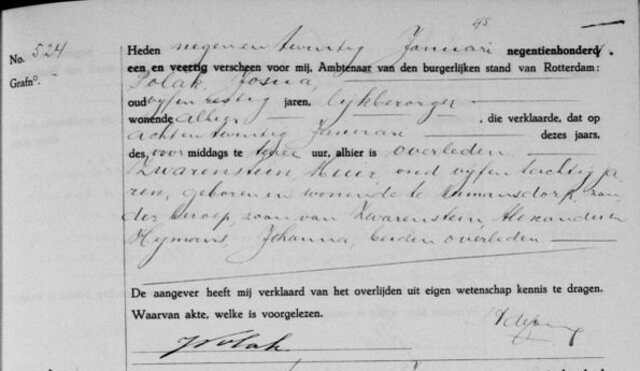 48
No. 524
Grafn°.
Heden negen en twintig Januari negentienhonderd
een en veertig verscheen voor mij, Ambtenaar van den burgerlijken stand van Rotterdam:
Polak, Josua,
oud vijf en zestig jaren, lijkbezorger
wonende alhier, die verklaarde, dat op
acht en twintig Januari dezes jaars,
des voormiddags te twee uur, alhier is overleden
Zwarenstein, Meier, oud vijf en tachtig ja
ren, geboren en wonende te Numansdorp, zon
der beroep, zoon van Zwarenstein, Alexander en
Hymans, Johanna, beiden overleden
De aangever heeft mij verklaard van het overlijden uit eigen wetenschap kennis te dragen.
Waarvan akte, welke is voorgelezen.
J Polak